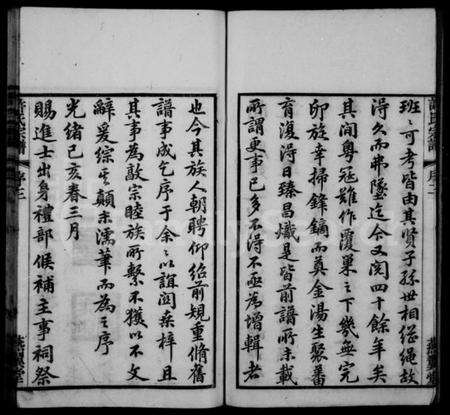 班班可考皆由其賢子孫世相繼繩故
得久而弗墜迄今又閱四十餘年矣
其間粵寇難作覆巢之下幾無完
卵族幸掃鋒鏑而奠金湯生聚蕃
育復得日臻昌熾是皆前譜所未載
所謂更事已多不得不亟為增輯者
也今其族人朝聘仰紹前規重脩舊
譜事成乞序于余余以誼関桑梓且
其事為敦宗睦族所繫不獲以不文
辭爰綜其顛末濡筆而為之序
光緒己亥春三月
賜進士出身禮部候補主事祠祭
宗譜
序三